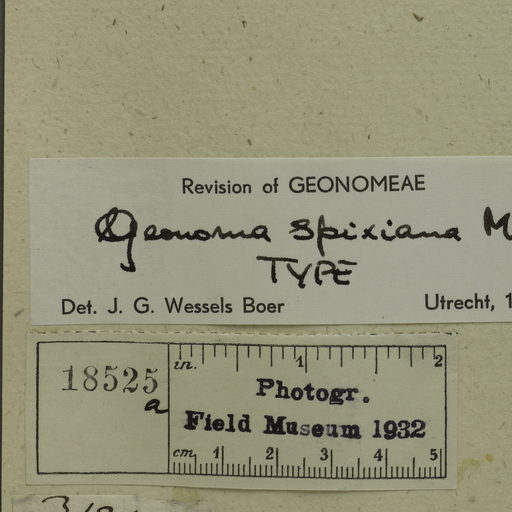 Revision of GEONOMEAE
Geonoma spixiana M
TYPE
Det. J. G. Wessels Boer
Utrecht, 1
18525
a
in. 1 2
Photogr.
Field Museum 1932
cm 1 2 3 4 5